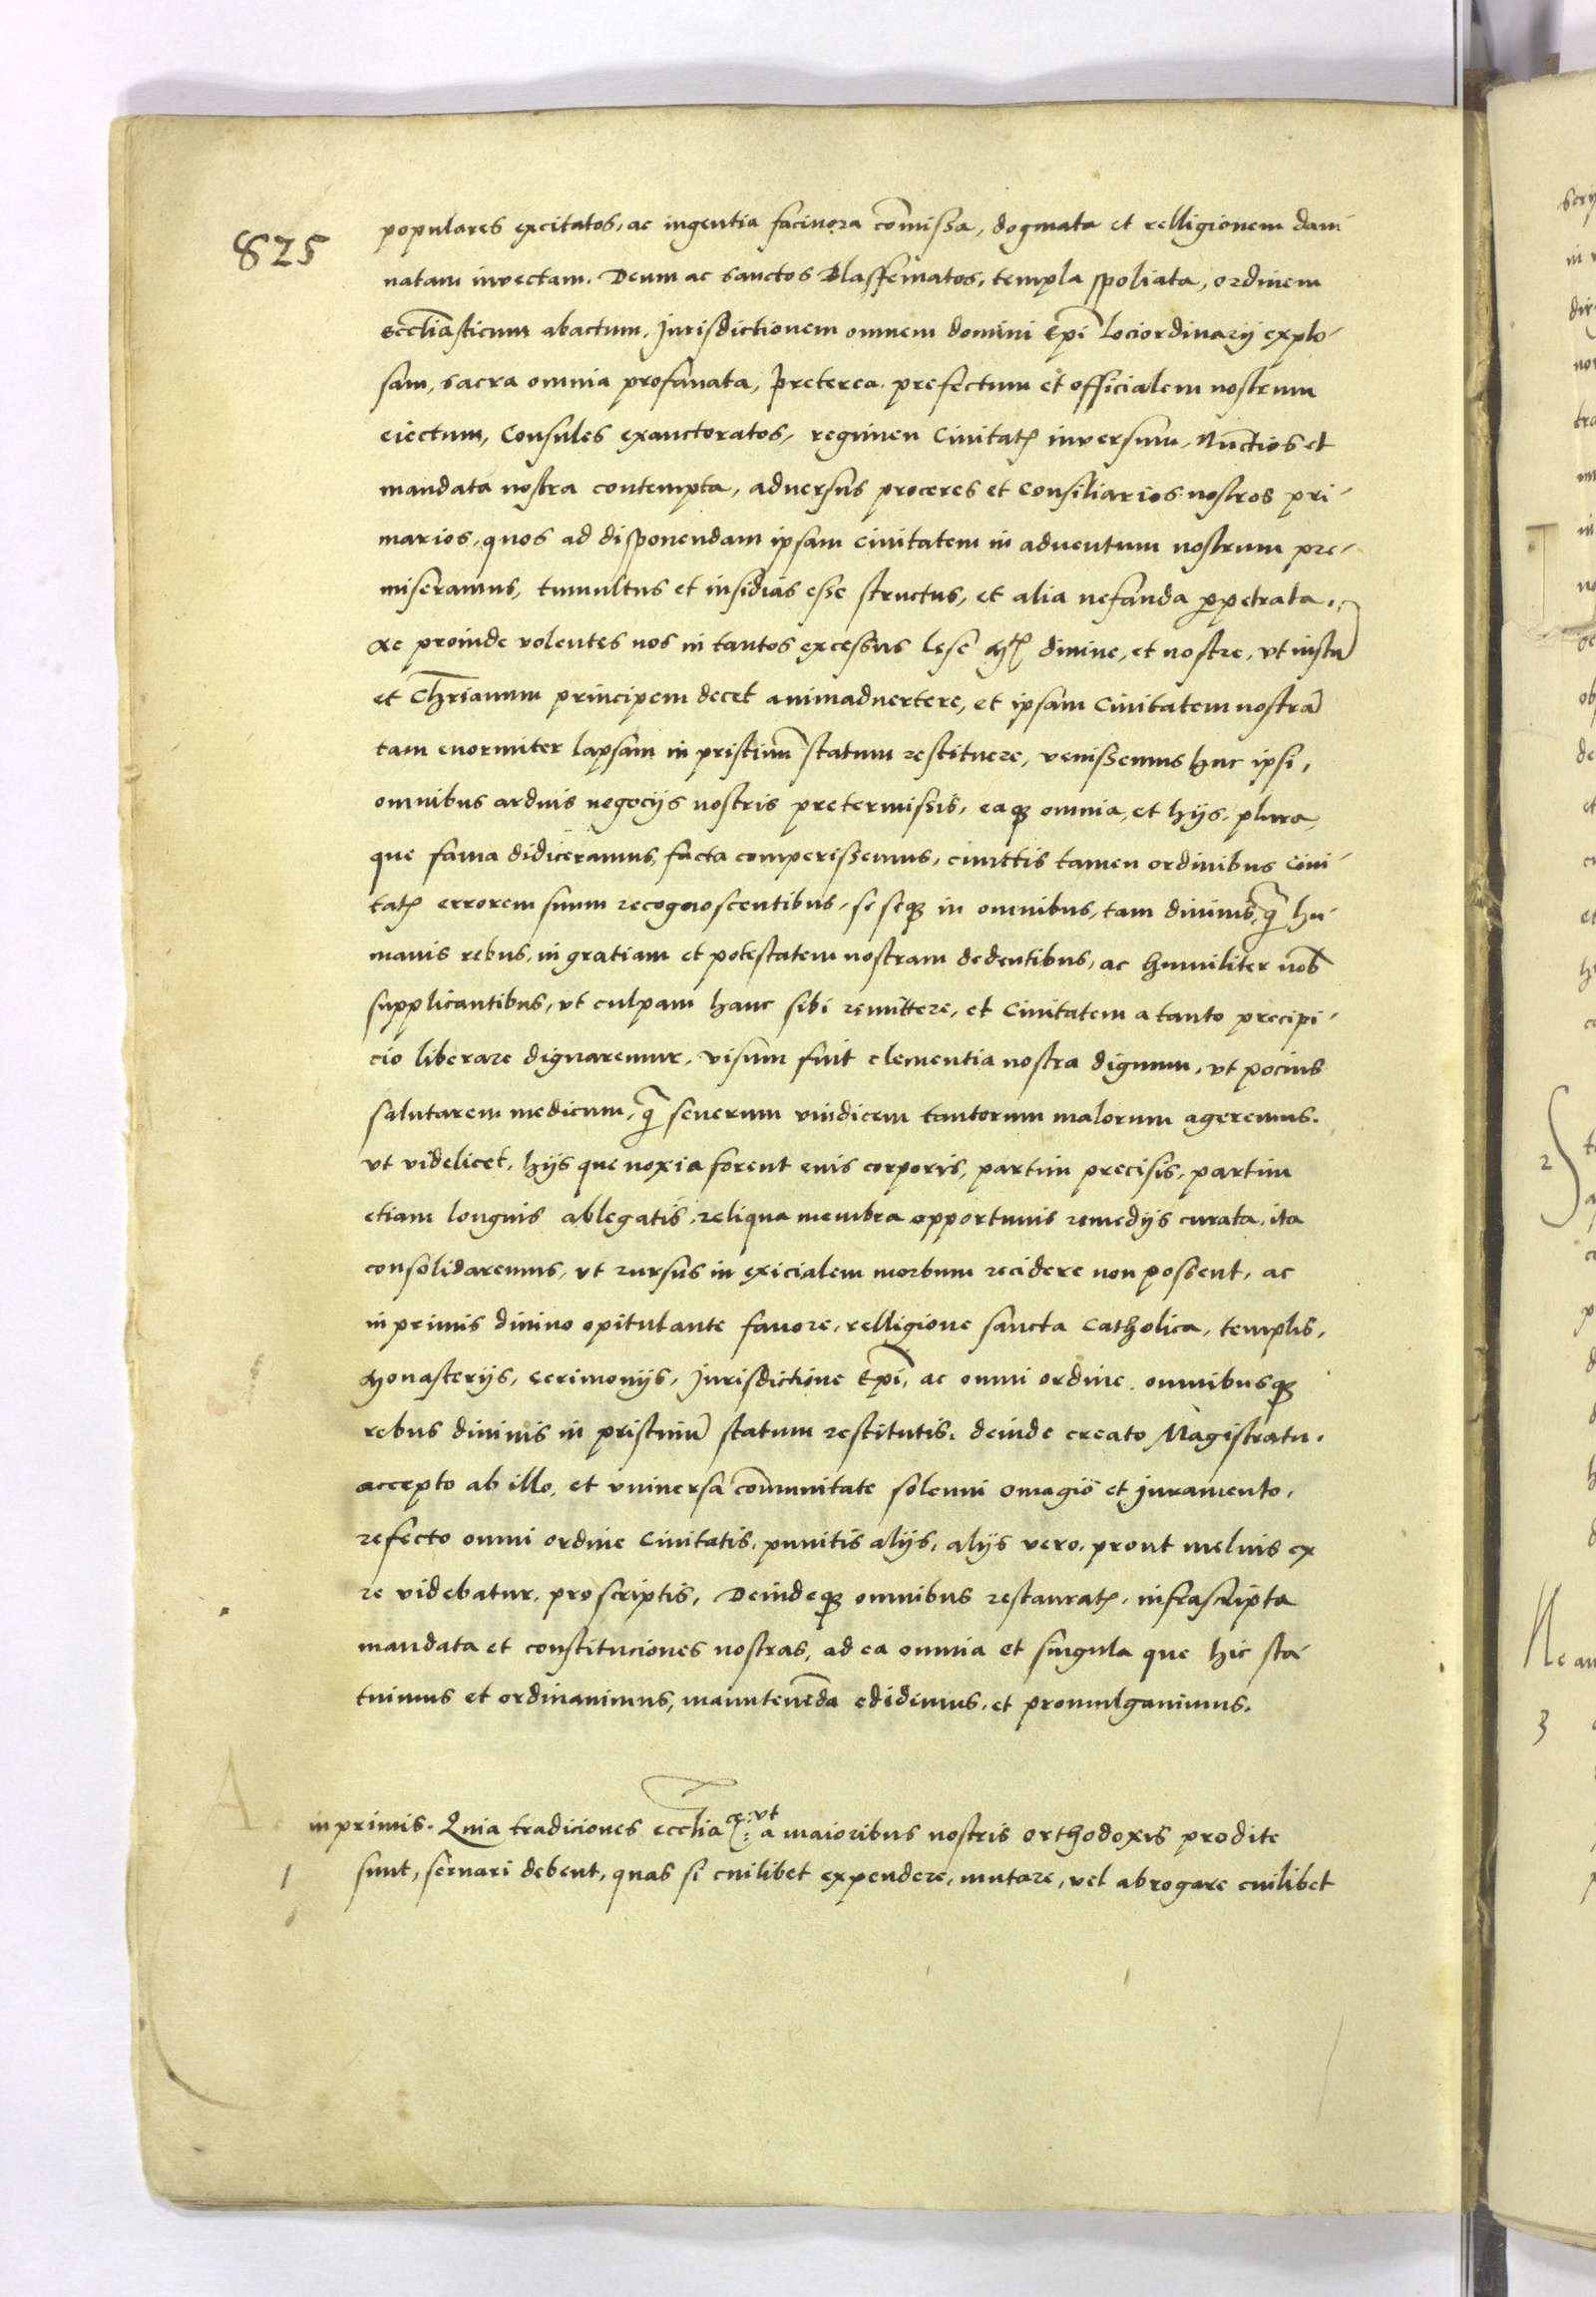 825
populares excitatos, ac ingentia facinora com̄issa, dogmata et relligionem dam-
natam invectam. Deum ac sanctos Blasfematos, templa spoliata, ordinem
eccl̄iasticum abactum, Jurisdictionem omnem domini Ep̄i lociordinarij explo-
sam, sacra omnia profanata, Preterea prefectum et officialem nostrum
eiectum, Consules exauctoratos, regimen Ciuitatꝭ inversum, Nūctios et
mandata nostra contempta, aduersus proceres et Consiliarios nostros pri-
marios, quos ad disponendam ipsam ciuitatem in aduentum nostrum pre-
miseramus, tumultus et insidias esse structus, et alia nefanda ꝑpetrata.
Ac proinde volentes nos in tantos excessus lese Mtꝭ diuine, et nostre, vt iustū
et Chr̄ianum principem decet animaduertere, et ipsam Ciuitatem nostrā
tam enormiter lapsam in pristinū statum restituere, venissemus huc ipsi,
omnibus arduis negocijs nostris pretermissis, eaqꝫ omnia, et hijs plura,
que fama didiceramus, facta comperissemus, cunctis tamen ordinibus Ciui-
tatꝭ errorem suum recognoscentibus, se seqꝫ in omnibus, tam diuinis, q̄ hu-
manis rebus, in gratiam et potestatem nostram dedentibus, ac humiliter nob̄
supplicantibus, vt culpam hanc sibi remittere, et Ciuitatem a tanto precipi-
cio liberare dignaremur, visum fuit clementia nostra dignum, vt pocius
salutarem medicum, q̄ seuerum vindicem tantorum malorum ageremus.
vt videlicet, hijs que noxia forent eius corporis, partim precisis, partim
etiam longius ablegatis, reliqua membra opportunis remedijs curata, ita
consolidaremus, vt rursus in exicialem morbum recidere non possent, ac
in primis diuino opitulante fauore, relligione sancta Catholica, templis,
Monasterijs, cerimonijs, Jurisdictione Ep̄i, ac omni ordine, omnibusqꝫ
rebus diuinis in pristinū statum restitutis, deinde creato Magistratu,
accepto ab illo, et vniuersa com̄unitate solenni omagio et juramento,
refecto omni ordine Ciuitatis, punitis alijs, alijs vero, prout melius ex
re videbatur, proscriptis, Deindeqꝫ omnibus restauratꝭ, infrascripta
mandata et constituciones nostras, ad ea omnia et singula que hic sta-
tuimus et ordinauimus, manutenēda edidimus, et promulgauimus.
inprimis. Quia tradiciones eccl̄iaꝝ: vt a maioribus nostris orthodoxis prodite
1
sunt, seruari debent, quas si cuilibet expendere, mutare, vel abrogare cuilibet
2
Ne
3